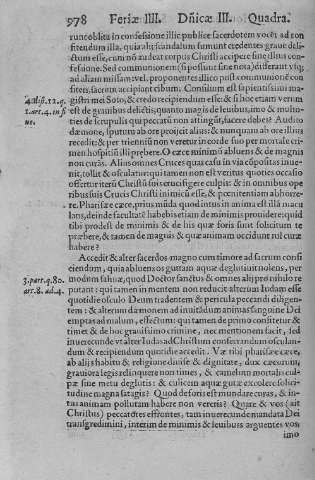 978 Feriæ IIII. Dñicæ III. Quadra.
runcobita in confessione illic publice sacerdotem vocet ad con
fitendum illa, quia alij scandalum sumunt credentes graue delic
ctum esse, cum nō audeat corpus Christi accipere sine illius con-
fessione. Sed communionem (si possunt sine nota) differant vsq;
ad aliam missam vel, proponentes illico post communionē con
fiteri, sacrum accipiant cibum. Consilium est sapientissimi ma
4.dist.12.q. gistri mei Soto, & credo recipiendum esse: & si hoc etiam verum
1.art.4.in fi est de grauibus delictis, quanto magis de leuibus, imo & multo-
ne. ties de scrupulis qui peccatū non attingūt, facere debes? Audito
dæmone, sputum ab ore proijcit alius: & nunquam ab ore illius
recedit: & per triennium non veretur in corde suo per mortale cri-
men hospitiū illi præbere. O cæce minimō abluens & de magni
non curās. Alius omnes Cruces quas casu in via cōpositas inue-
nit, tollit & osculatur: qui tamen non est veritus quoties occasio
offertur iteru Christū suis crucifigere culpis: & in omnibus ope
ribus suis Crucis Christi inimicū esse, & pœnitentiam abhorre-
re. Pharisæe cæce, prius mūda quod intus in anima est illā macu
lans, deinde facultatē habebis etiam de minimis prouidere: quid
tibi prodest de minimis & de his quæ foris sunt solicitum te
præbere, & tamen de magnis & quæ animam occidunt nō curæ
habere?
Accedit & alter sacerdos magno cum timore ad sacrum consi
ciendum, quia abluens os guttam aquæ deglutiuit nolens, per
3.part.q.80. modum saliuæ, quod Doctor sanctus & omnes alij pro nihilo re
art.8. ad.4. putant: qui tamen in mentem non reducit alterum Iudam esse
quotidie osculo Deum tradentem & pericula peccandi diligen-
tem: & alterum dæmonem ad inuitādum animas sanguine Dei
emptas ad malum, esse Deum: qui tamen de primo confitetur &
timet & de hoc grauissimo crimine, nec mentionem facit, sed
inuerecunde vt alter Iudas ad Christum conserrandum osculan-
dum & recipiendum quotidie accedit. Væ tibi pharisæe cæce,
ab alijs habitu & religione duisse & dignitate, dux cæcorum,
grauiora legis reliquere non times, & camelum mortalis cul-
pæ siue metu deglutis: & culicem aquæ guttæ excolere solici-
tudine magna satagis? Quod deforis est mundare curas, & in-
tus animam pollutam habere non vereris? Quare & vos (ait
Christus) peccatores effrontes, tam inuerecunde mandata Dei
transgredimini, interim de minimis & leuibus arguentes vos
imo